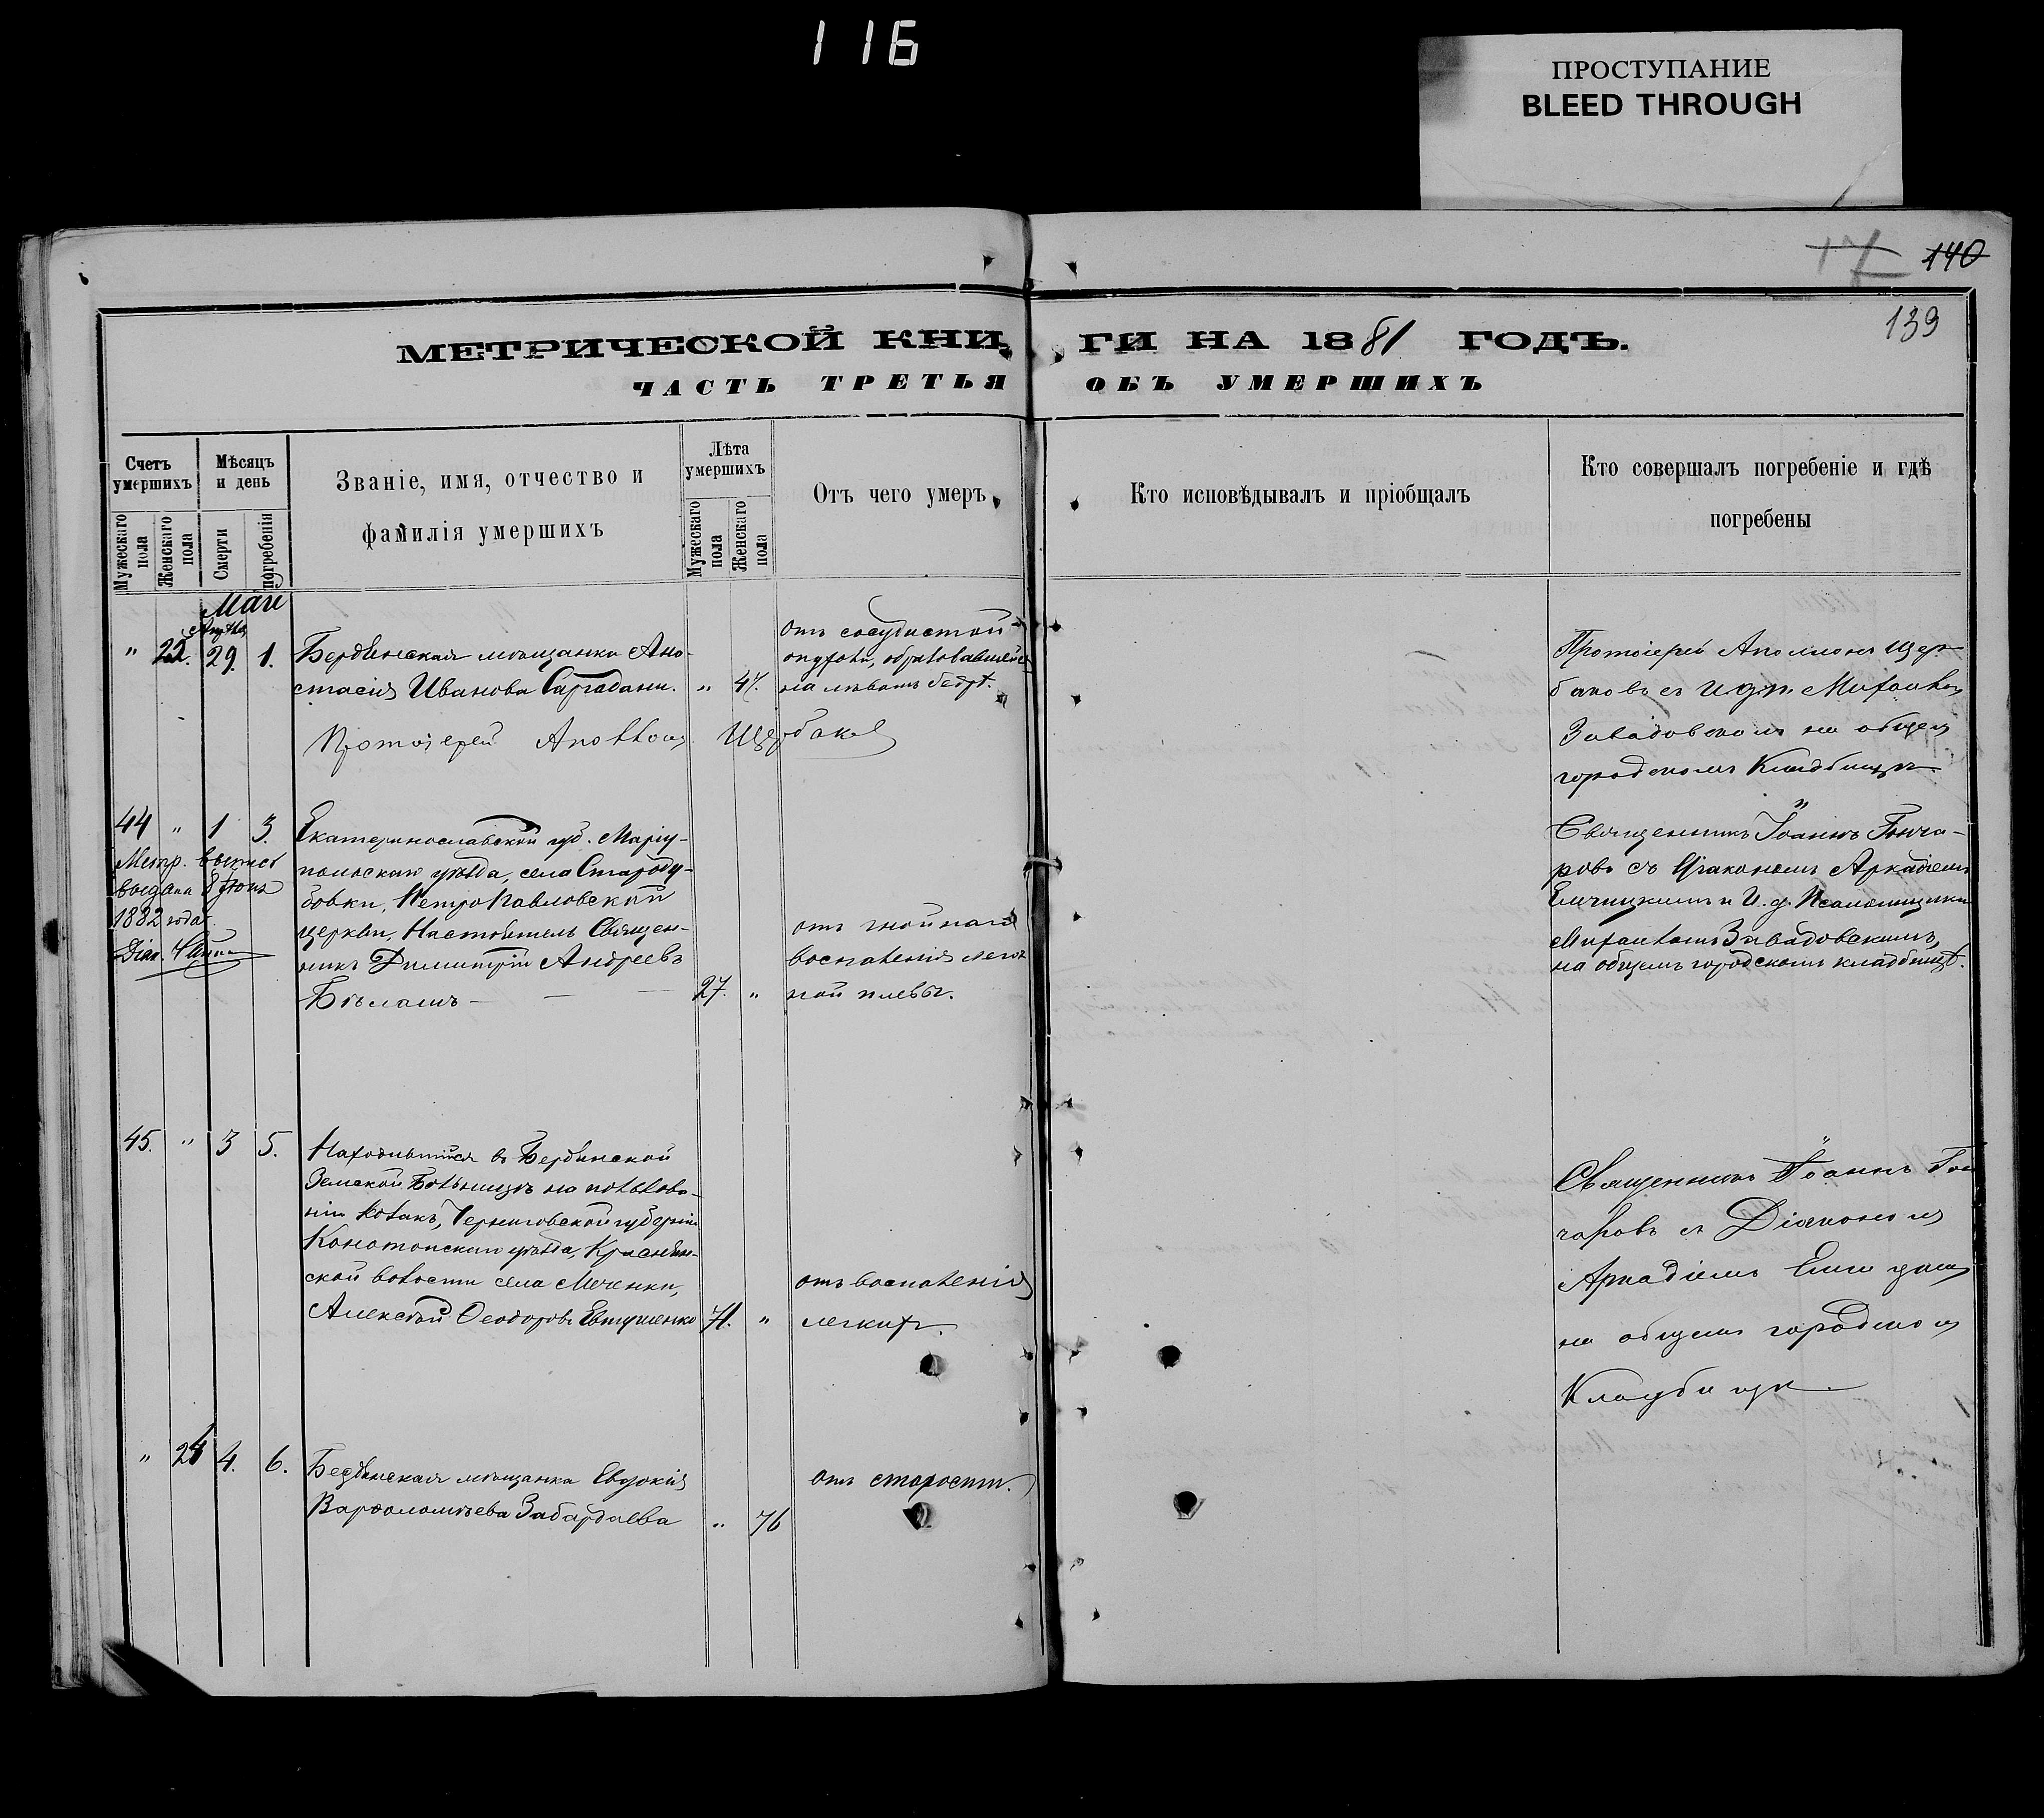 116
ПРОСТУПАНИЕ
BLEED THROUGH
140
139
МЕТРИЧЕСКОЙ КНИГИ НА 1881 ГОДЪ.
ЧАСТЬ ТРЕТЬЯ ОБЪ УМЕРШИХЪ
Счетъ умершихъ
Мужескаго пола
Женскаго пола
Мѣсяцъ и день
Смерти
погребенія
Званіе, имя, отчество и
фамилія умершихъ
Лѣта умершихъ
Мужескаго пола
Женскаго пола
Отъ чего умеръ
Кто исповѣдывалъ и пріобщалъ
Кто совершалъ погребеніе и гдѣ
погребены
Май
" 22. 29. 1.
Бердянская мѣщанка Ана-
стасія Иванова
" 47.
отъ сосудистой
опухоли, образовавшейся
на лѣвомъ бедрѣ.
Протоіерей Аполлонъ Щер-
баковъ съ И. д. п. Михаиломъ
Завадовскимъ на общемъ
городскомъ Кладбищѣ
Протоіерей Аполлонъ Щербаковъ
44 " 1 3.
Метр. выпись
выдана 8 Іюня
1882 года
Діак.
Екатеринославской губ. Маріу-
польскаго уѣзда, села Староду-
бовки, Петропавловской
церкви, Настоятель Священ-
никъ Димитрій Андреевъ
Бѣлашъ
27. "
отъ гнойнаго
воспаленія легоч
ной плевы.
Священникъ Іоаннъ Гонча-
ровъ съ Діакономъ Аркадіемъ
и И. д. Псаломщика
Михаиломъ Завадовскимъ,
на общемъ городскомъ кладбищѣ.
45. " 3 5.
Находившійся въ Бердянской
Земской Больницѣ на пользова-
ніи козакъ, Черниговской губерніи
Конотопскаго уѣзда, Краснян-
ской волости села
Алексѣй Ѳеодоровъ Евтушенко
71. "
отъ воспаленія
легкихъ.
Священникъ Іоаннъ Гон
чаровъ съ Діакономъ
Аркадіемъ
на общемъ городскомъ
Кладбищѣ
" 24 4. 6.
Бердянская мѣщанка Евдокія
Варѳоломѣева Забардаева
" 76
отъ старости.